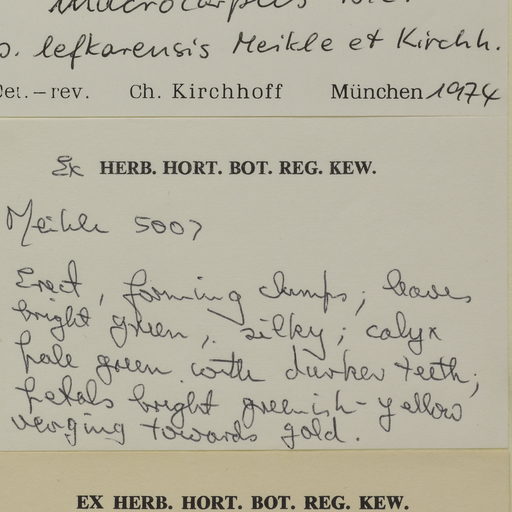 macrocarpus
. lefkarensis Meikle et Kirchh.
Det. – rev. Ch. Kirchhoff München 1974
Ex HERB. HORT. BOT. REG. KEW.
Meikle 5007
Erect, forming clumps; leaves
bright green, silky; calyx
pale green with darker teeth;
petals bright greenish-yellow
verging towards gold.
EX HERB. HORT. BOT. REG. KEW.